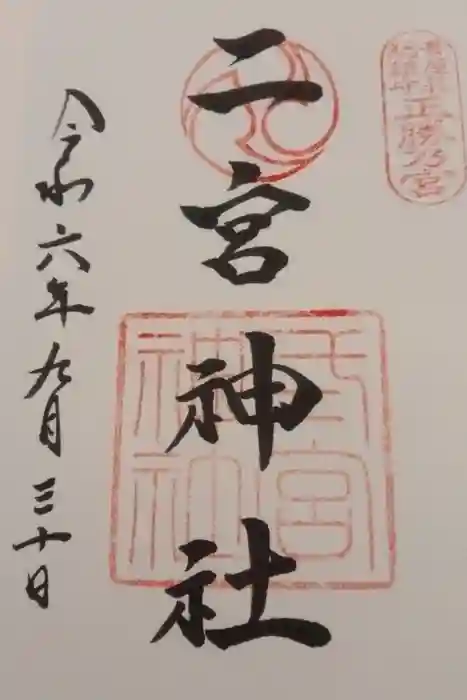 正勝乃宮
二宮神社
二宮神社
令和六年九月三十日